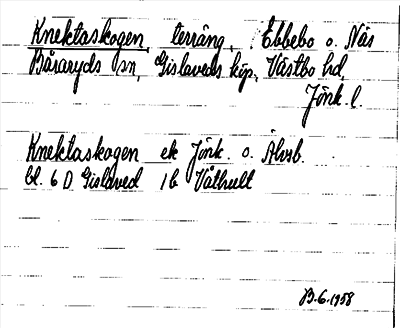 Knektaskogen, terräng, Ebbebo o. Näs
Båraryds sn, Gislaveds köp., Västbo hd,
Jönk. l.
Knektaskogen ek Jönk. o. Älvsb.
bl. 6 D Gislaved 1b Våthult
B-6.1958